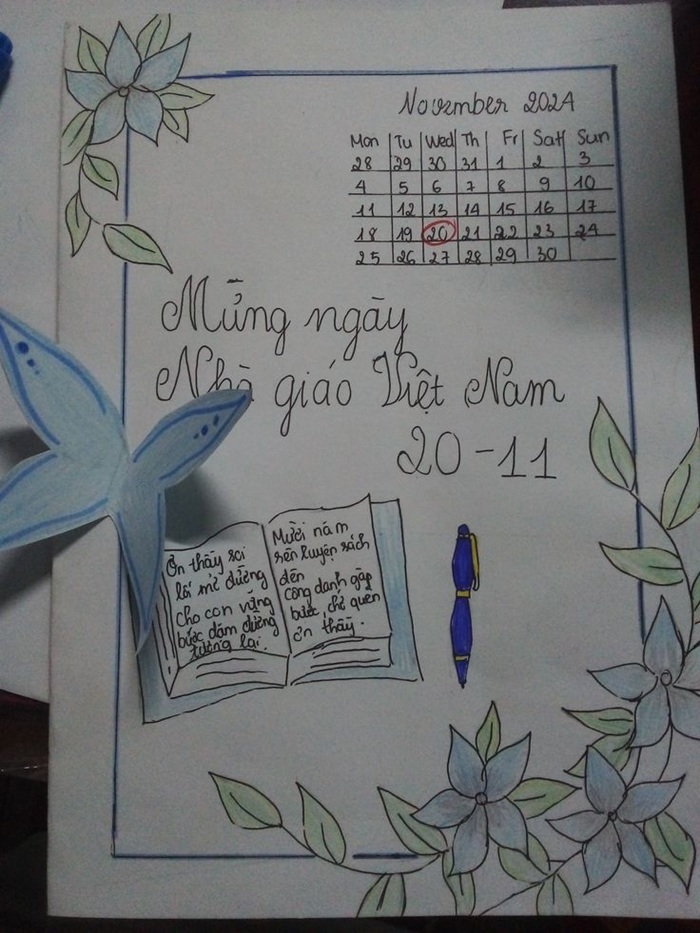 November 2024
Mon Tu Wed Th Fr Sat Sun
28 29 30 31 1 2 3
4 5 6 7 8 9 10
11 12 13 14 15 16 17
18 19 20 21 22 23 24
25 26 27 28 29 30
Mừng ngày
Nhà giáo Việt Nam
20-11
Ơn thầy soi
lối mở đường
cho con vững
bước dặm đường
tương lai.
Mười năm
rèn luyện sách
đèn
công danh gặp
bước, chớ quên
ơn thầy.